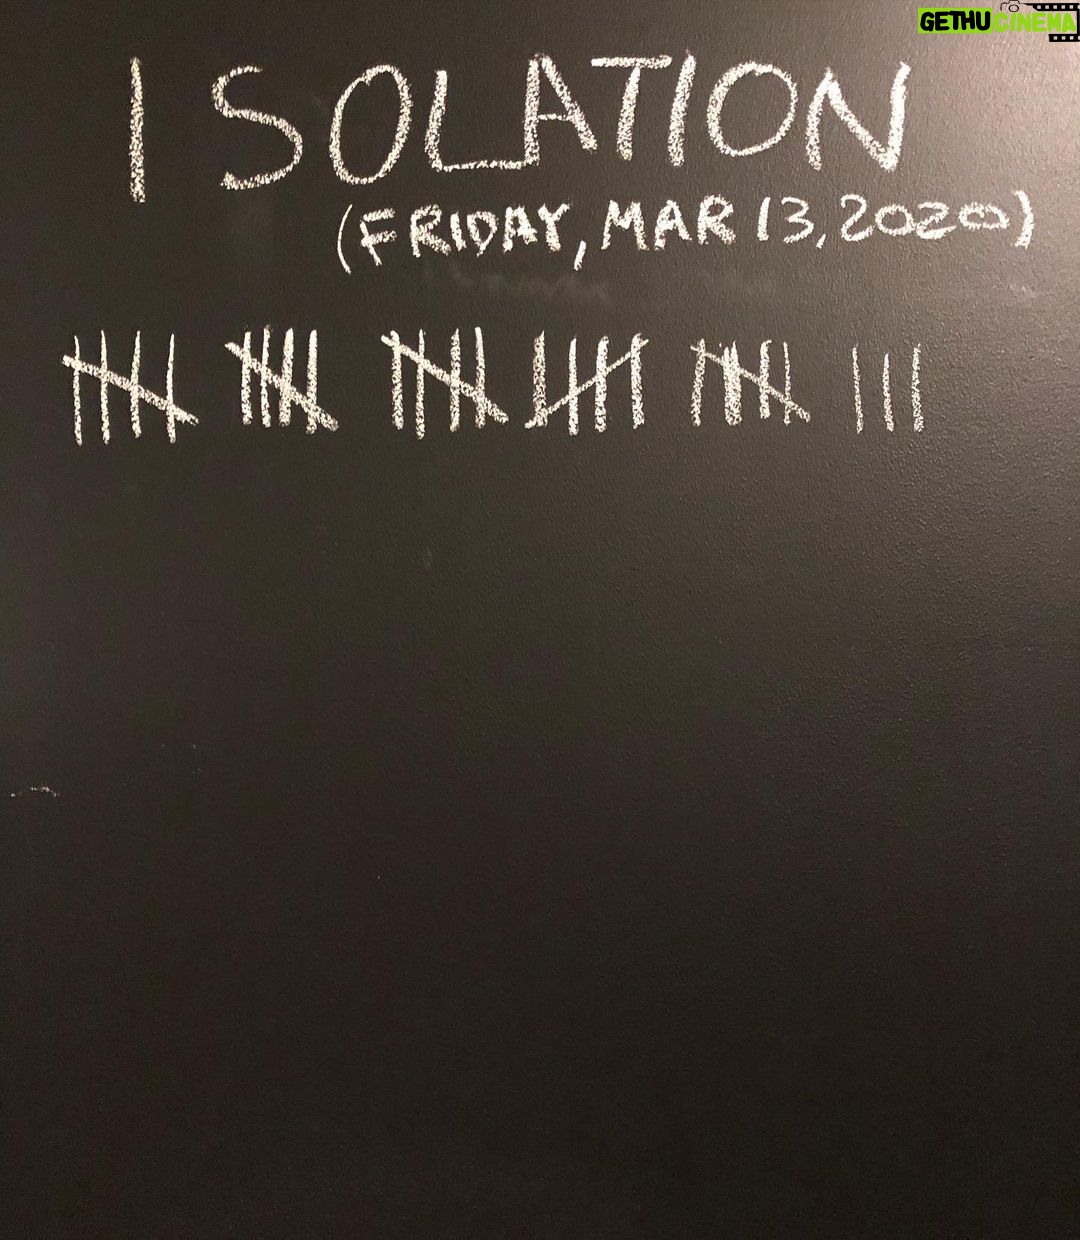 GETHUCINEMA
I SOLATION
(FRIDAY, MAR 13, 2020)